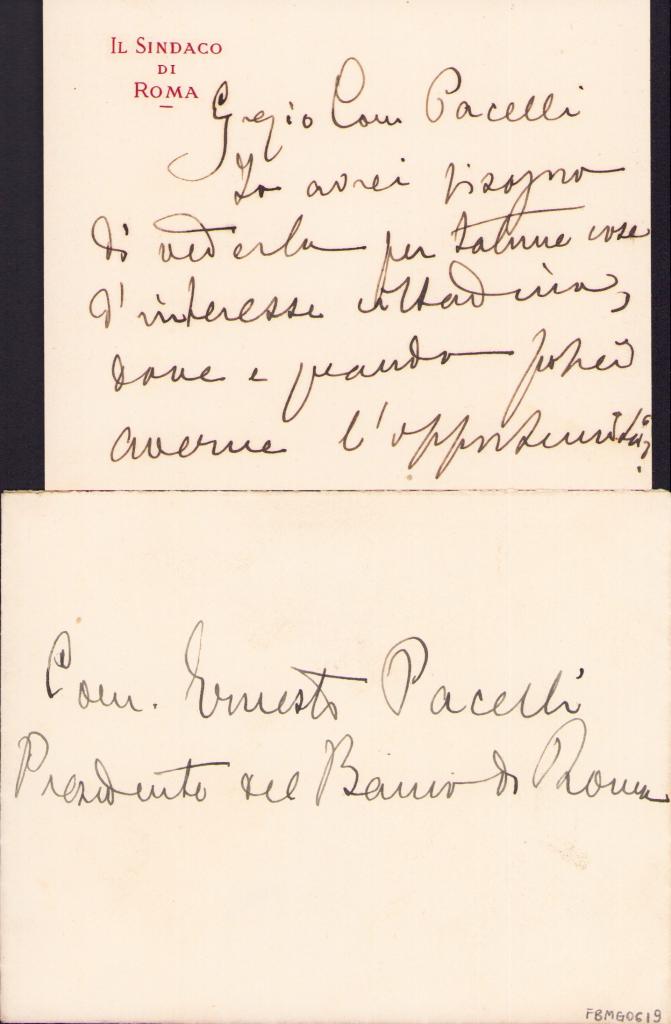 IL SINDACO
DI
ROMA
Gregio Com Pacelli
Io avrei bisogno
di vederla per talune cose
d'interesse cittadino,
dove e quando potrei
averne l'opportunità?
Com. Ernesto Pacelli
Presidente del Banco di Roma
FBMG0619